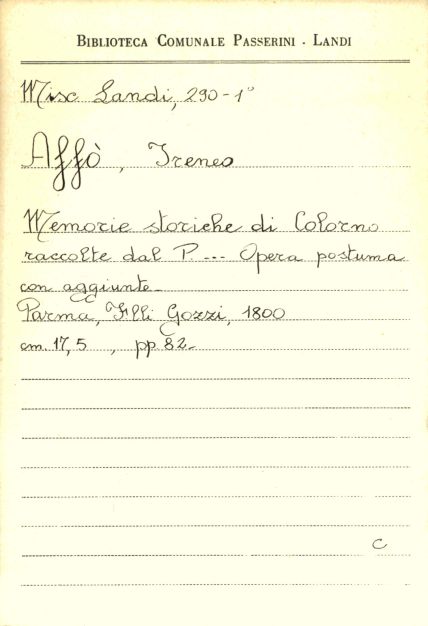 BIBLIOTECA COMUNALE PASSERINI - LANDI
Misc Landi, 290-1°
Affò, Ireneo
Memorie storiche di Colorno
raccolte dal P... Opera postuma
con aggiunte-
Parma, F.lli Gozzi, 1800
cm. 17,5 , pp. 82-
C